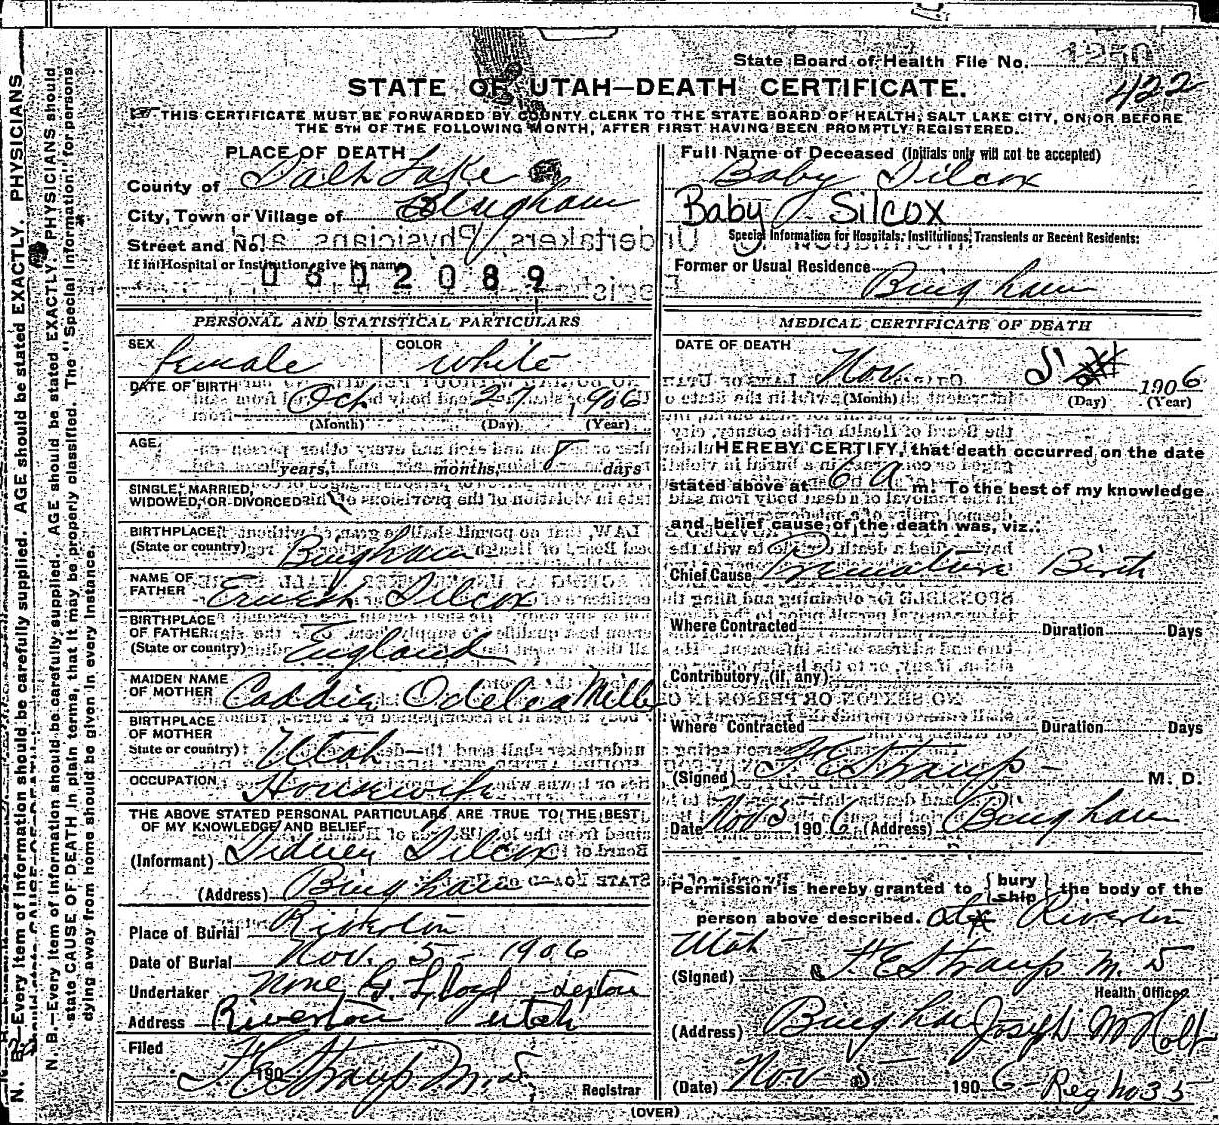 State Board of Health File No. 1250
422
STATE OF UTAH—DEATH CERTIFICATE.
THIS CERTIFICATE MUST BE FORWARDED BY COUNTY CLERK TO THE STATE BOARD OF HEALTH, SALT LAKE CITY, ON OR BEFORE
THE 5TH OF THE FOLLOWING MONTH, AFTER FIRST HAVING BEEN PROMPTLY REGISTERED.
PLACE OF DEATH
County of Salt Lake
City, Town or Village of Bingham
Street and No.
If in Hospital or Institution, give its name
0602089
Full Name of Deceased (Initials only will not be accepted)
Baby Silcox
Baby Silcox
Special Information for Hospitals, Institutions, Transients or Recent Residents:
Former or Usual Residence
Bingham
PERSONAL AND STATISTICAL PARTICULARS
SEX female COLOR white
DATE OF BIRTH Oct 27 1906
(Month) (Day) (Year)
AGE
years, months, 8 days
SINGLE, MARRIED,
WIDOWED, OR DIVORCED
BIRTHPLACE
(State or country) Bingham
NAME OF
FATHER Ernest Silcox
BIRTHPLACE
OF FATHER
(State or country) England
MAIDEN NAME
OF MOTHER Caddie Odelia Mille
BIRTHPLACE
OF MOTHER
State or country) Utah
OCCUPATION Housewife
THE ABOVE STATED PERSONAL PARTICULARS ARE TRUE TO THE BEST
OF MY KNOWLEDGE AND BELIEF
(Informant) Sidney Silcox
(Address) Bingham
Place of Burial Riverton
Date of Burial Nov. 5- 1906
Undertaker None G. Lloyd - Sexton
Address Riverton Utah
Filed
190
F E Straup M.D.
Registrar
MEDICAL CERTIFICATE OF DEATH
DATE OF DEATH
Nov 5 1906
(Month) (Day) (Year)
I HEREBY CERTIFY, that death occurred on the date
stated above at 6 a m. To the best of my knowledge
and belief cause of the death was, viz.:
Chief Cause Premature Birth
Where Contracted Duration Days
Contributory, (if any)
Where Contracted Duration Days
(Signed) F. E. Straup - M. D.
Date Nov 5 1906 (Address) Bingham
Permission is hereby granted to bury ship the body of the
person above described. at Riverton
Utah
(Signed) F. E. Straup M. D
Health Officer
(Address) Bingham Joseph M Holt
(Date) Nov 5 1906 - Reg no 35
(OVER)
N. B.—Every item of information should be carefully supplied. AGE should be stated EXACTLY. PHYSICIANS
N. B.—Every item of information should be carefully supplied. AGE should be stated EXACTLY. PHYSICIANS should
state CAUSE OF DEATH in plain terms, that it may be properly classified. The "Special Information" for persons
dying away from home should be given in every instance.